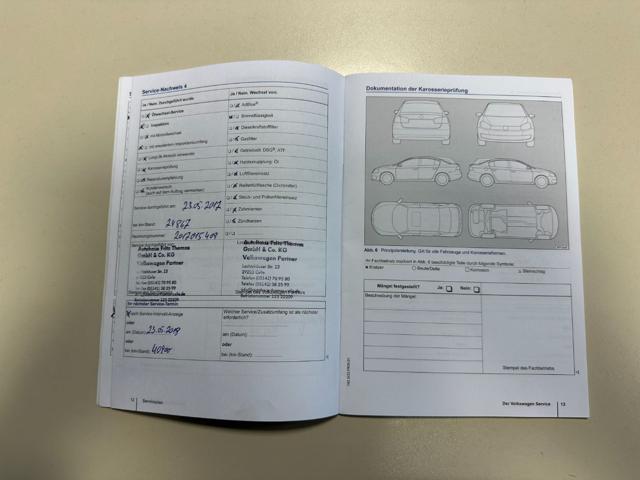 Service-Nachweis 4
Ja / Nein. Durchgeführt wurde
Ölwechsel-Service
Inspektion
mit Motorölwechsel
mit erweitertem Inspektionsumfang
LongLife Motoröl verwendet
Karosserieprüfung
Reparaturempfehlung
Kundenwunsch
(auch auf dem Auftrag vermerken)
Service durchgeführt am: 23.05.2017
bei (km-Stand): 24867
Rechnungsnummer: 2017015409
Ja / Nein. Wechsel von:
AdBlue®
Bremsflüssigkeit
Dieselkraftstofffilter
Gasfilter
Getriebeöl: DSG®, ATF
Haldexkupplung: Öl
Luftfiltereinsatz
Reifenfüllflasche (Dichtmittel)
Staub- und Pollenfiltereinsatz
Zahnriemen
Zündkerzen
Autohaus Fritz Thomas
GmbH & Co. KG
Volkswagen Partner
29223 Celle
Autohaus Fritz Thomas
GmbH & Co. KG
Volkswagen Partner
29223 Celle
Nächster Service-Termin
nach Service-Intervall-Anzeige
oder
am (Datum): 23.05.2019
oder
bei (km-Stand):
Welcher Service/Zusatzumfang ist als nächster
erforderlich?
am (Datum):
oder
bei (km-Stand):
12 Serviceplan
Dokumentation der Karosserieprüfung
Abb. 6 Prinzipdarstellung: Gilt für alle Fahrzeuge und Karosserieformen.
Ihr Fachbetrieb markiert in Abb. 6 beschädigte Teile durch folgende Symbole:
Kratzer
Beule/Delle
Korrosion
Steinschlag
Mängel festgestellt? Ja Nein:
Beschreibung der Mängel:
Stempel des Fachbetriebs
Der Volkswagen Service 13